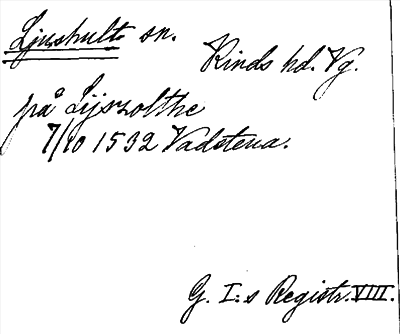 Ljushults sn.
Kinds hd. Vg.
på Lijszolthe
7/10 1532 Vadstena.
G. I:s Registr. VIII.